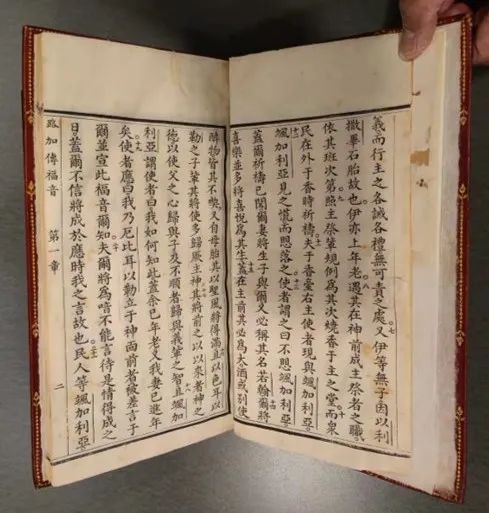 義而行主之各誡各禮無可責之處又伊等無子因以利
撒畢石胎故也伊亦上年老遇其在神前成主祭者之職
依其班次第照主祭輩規例爲其次燒香于主之堂而衆
民在外于香時祈禱夫于香臺右主使者現與颯加利亞
颯加利亞見之慌而愳落之使者謂之曰不愳颯加利亞
蓋爾祈禱已聞爾妻將生子與爾又必稱其名若翰爾將
喜樂並多將喜悅爲其生蓋在主前其必爲大酒或別使
醉物皆其不喫又自母胎其以聖風將得滿焉以色耳以
勒之子輩其將使多歸厥主神其將前之以以來者神之
德以使父之心歸與子及不順者歸與義輩之智且颯加
利亞謂使者曰我如何知此蓋余已年老又我妻已進年
矣使者應曰我乃厄比耳以勳立于神面前者被差言于
爾並宣此福音爾知夫爾將爲啞不能言待是情得成之
日蓋爾不信將成於應時我之言故也民人等颯加利亞
路加傳福音 第一章 二